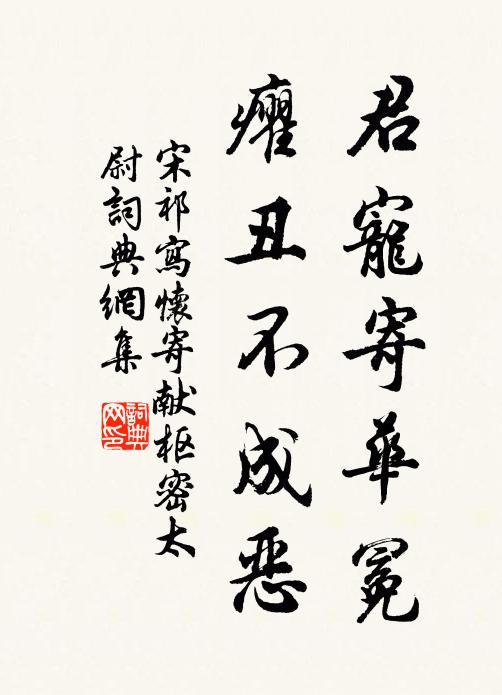 君寵寄華冕
癯丑不成惡
宋祁寫懷寄献枢密太
尉詞典網集
詞典
网印